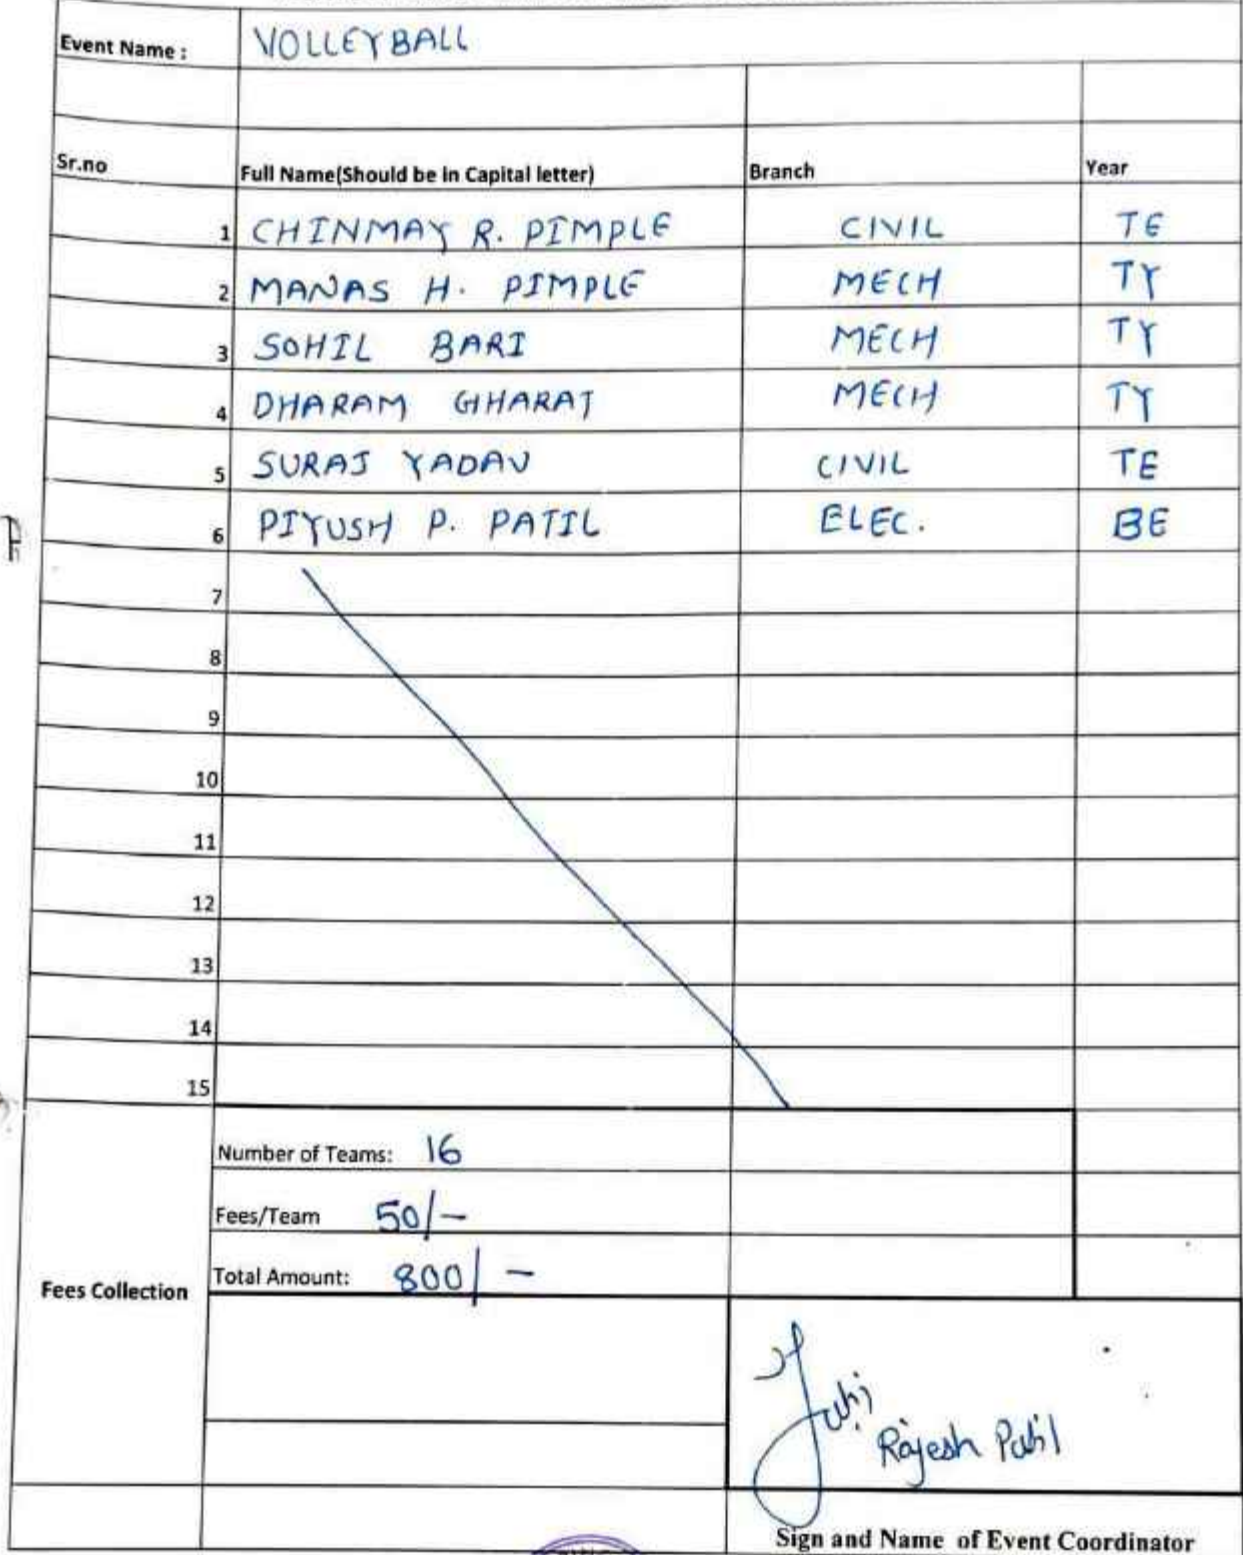 Event Name : VOLLEYBALL
Sr.no Full Name(Should be in Capital letter) Branch Year
1 CHINMAY R. PIMPLE CIVIL TE
2 MANAS H. PIMPLE MECH TY
3 SOHIL BARI MECH TY
4 DHARAM GHARAT MECH TY
5 SURAJ YADAV CIVIL TE
6 PIYUSH P. PATIL ELEC. BE
7
8
9
10
11
12
13
14
15
Number of Teams: 16
Fees/Team 50/-
Total Amount: 800/-
Fees Collection
Rajesh Patil
Sign and Name of Event Coordinator